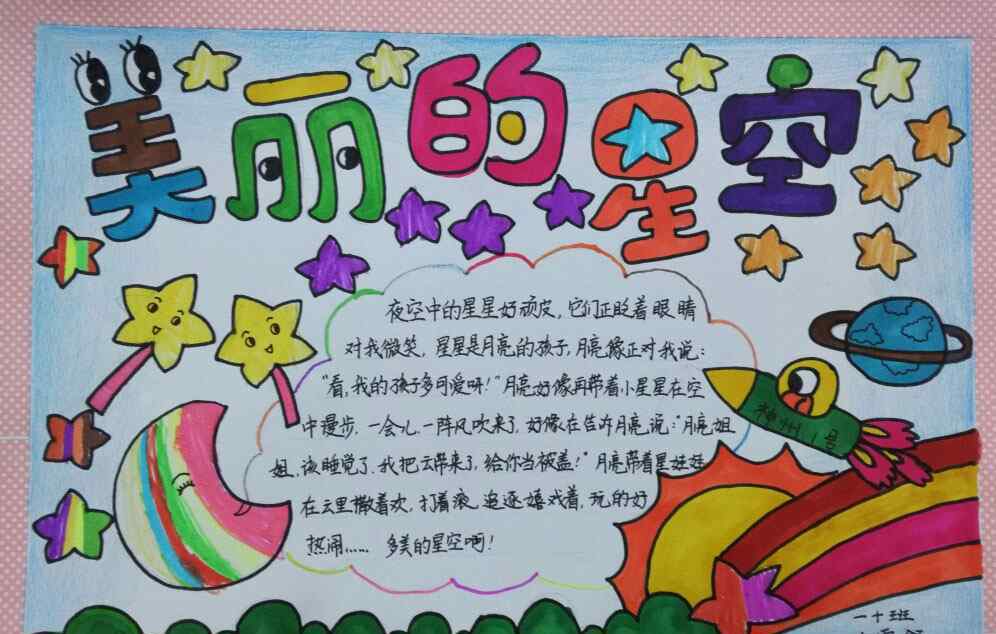 美丽的星空
夜空中的星星好顽皮,它们正眨着眼睛
对我微笑,星星是月亮的孩子,月亮像正对我说:
“看,我的孩子多可爱呀!”月亮好像再带着小星星在空
中漫步.一会儿.一阵风吹来了.好像在告诉月亮说:“月亮姐
姐,该睡觉了.我把云带来了,给你当被盖!”月亮带着星娃娃
在云里撒着欢,打着滚.追逐嬉戏着,玩的好
热闹…… 多美的星空啊!
神州1号
一十班